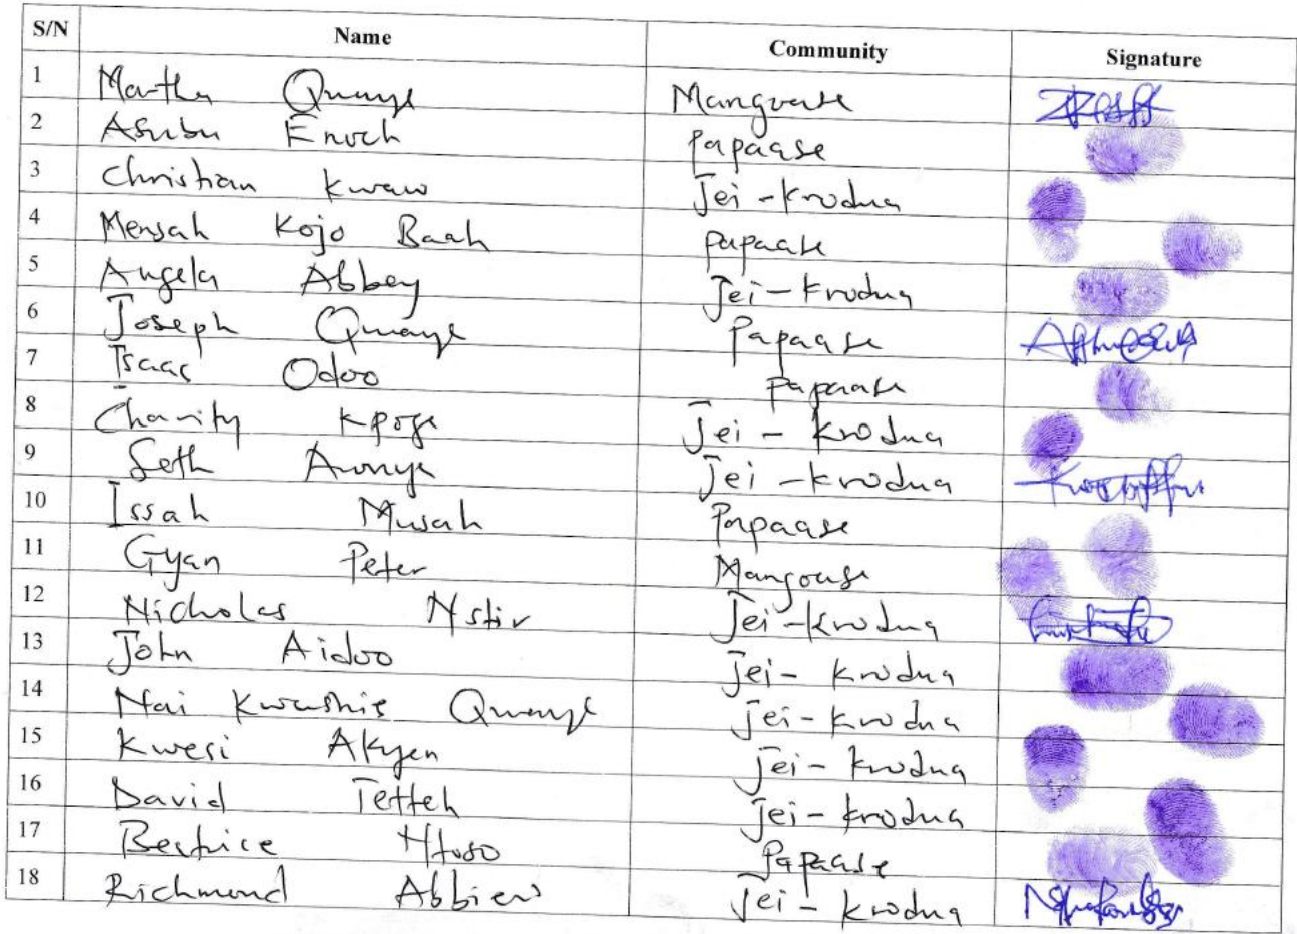 S/N Name Community Signature
1 Martha Quaye Mangoase
2 Asubu Enoch Papaase
3 Christian Kwaw Jei-Krodua
4 Mensah Kojo Baah Papaase
5 Angela Abbey Jei-Krodua
6 Joseph Quaye Papaase
7 Isaac Odoo Papaase
8 Charity Jei-Krodua
9 Seth Jei-Krodua
10 Issah Musah Papaase
11 Gyan Peter Mangoase
12 Nicholas Jei-Krodua
13 John Aidoo Jei-Krodua
14 Nai Kwashie Quaye Jei-Krodua
15 Kwesi Akyen Jei-Krodua
16 David Tetteh Jei-Krodua
17 Beatrice Papaase
18 Richmond Abbiew Jei-Krodua